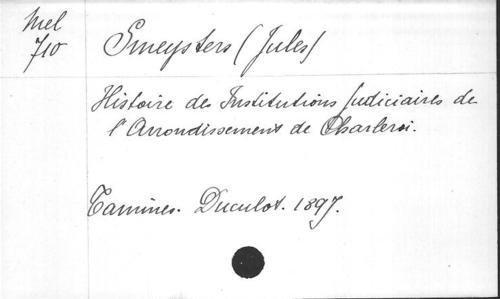 Mel
710
Smeysters (Jules)
Histoire des Institutions judiciaires de
l'Arrondissement de Charleroi.
Tamines. Duculot. 1897.